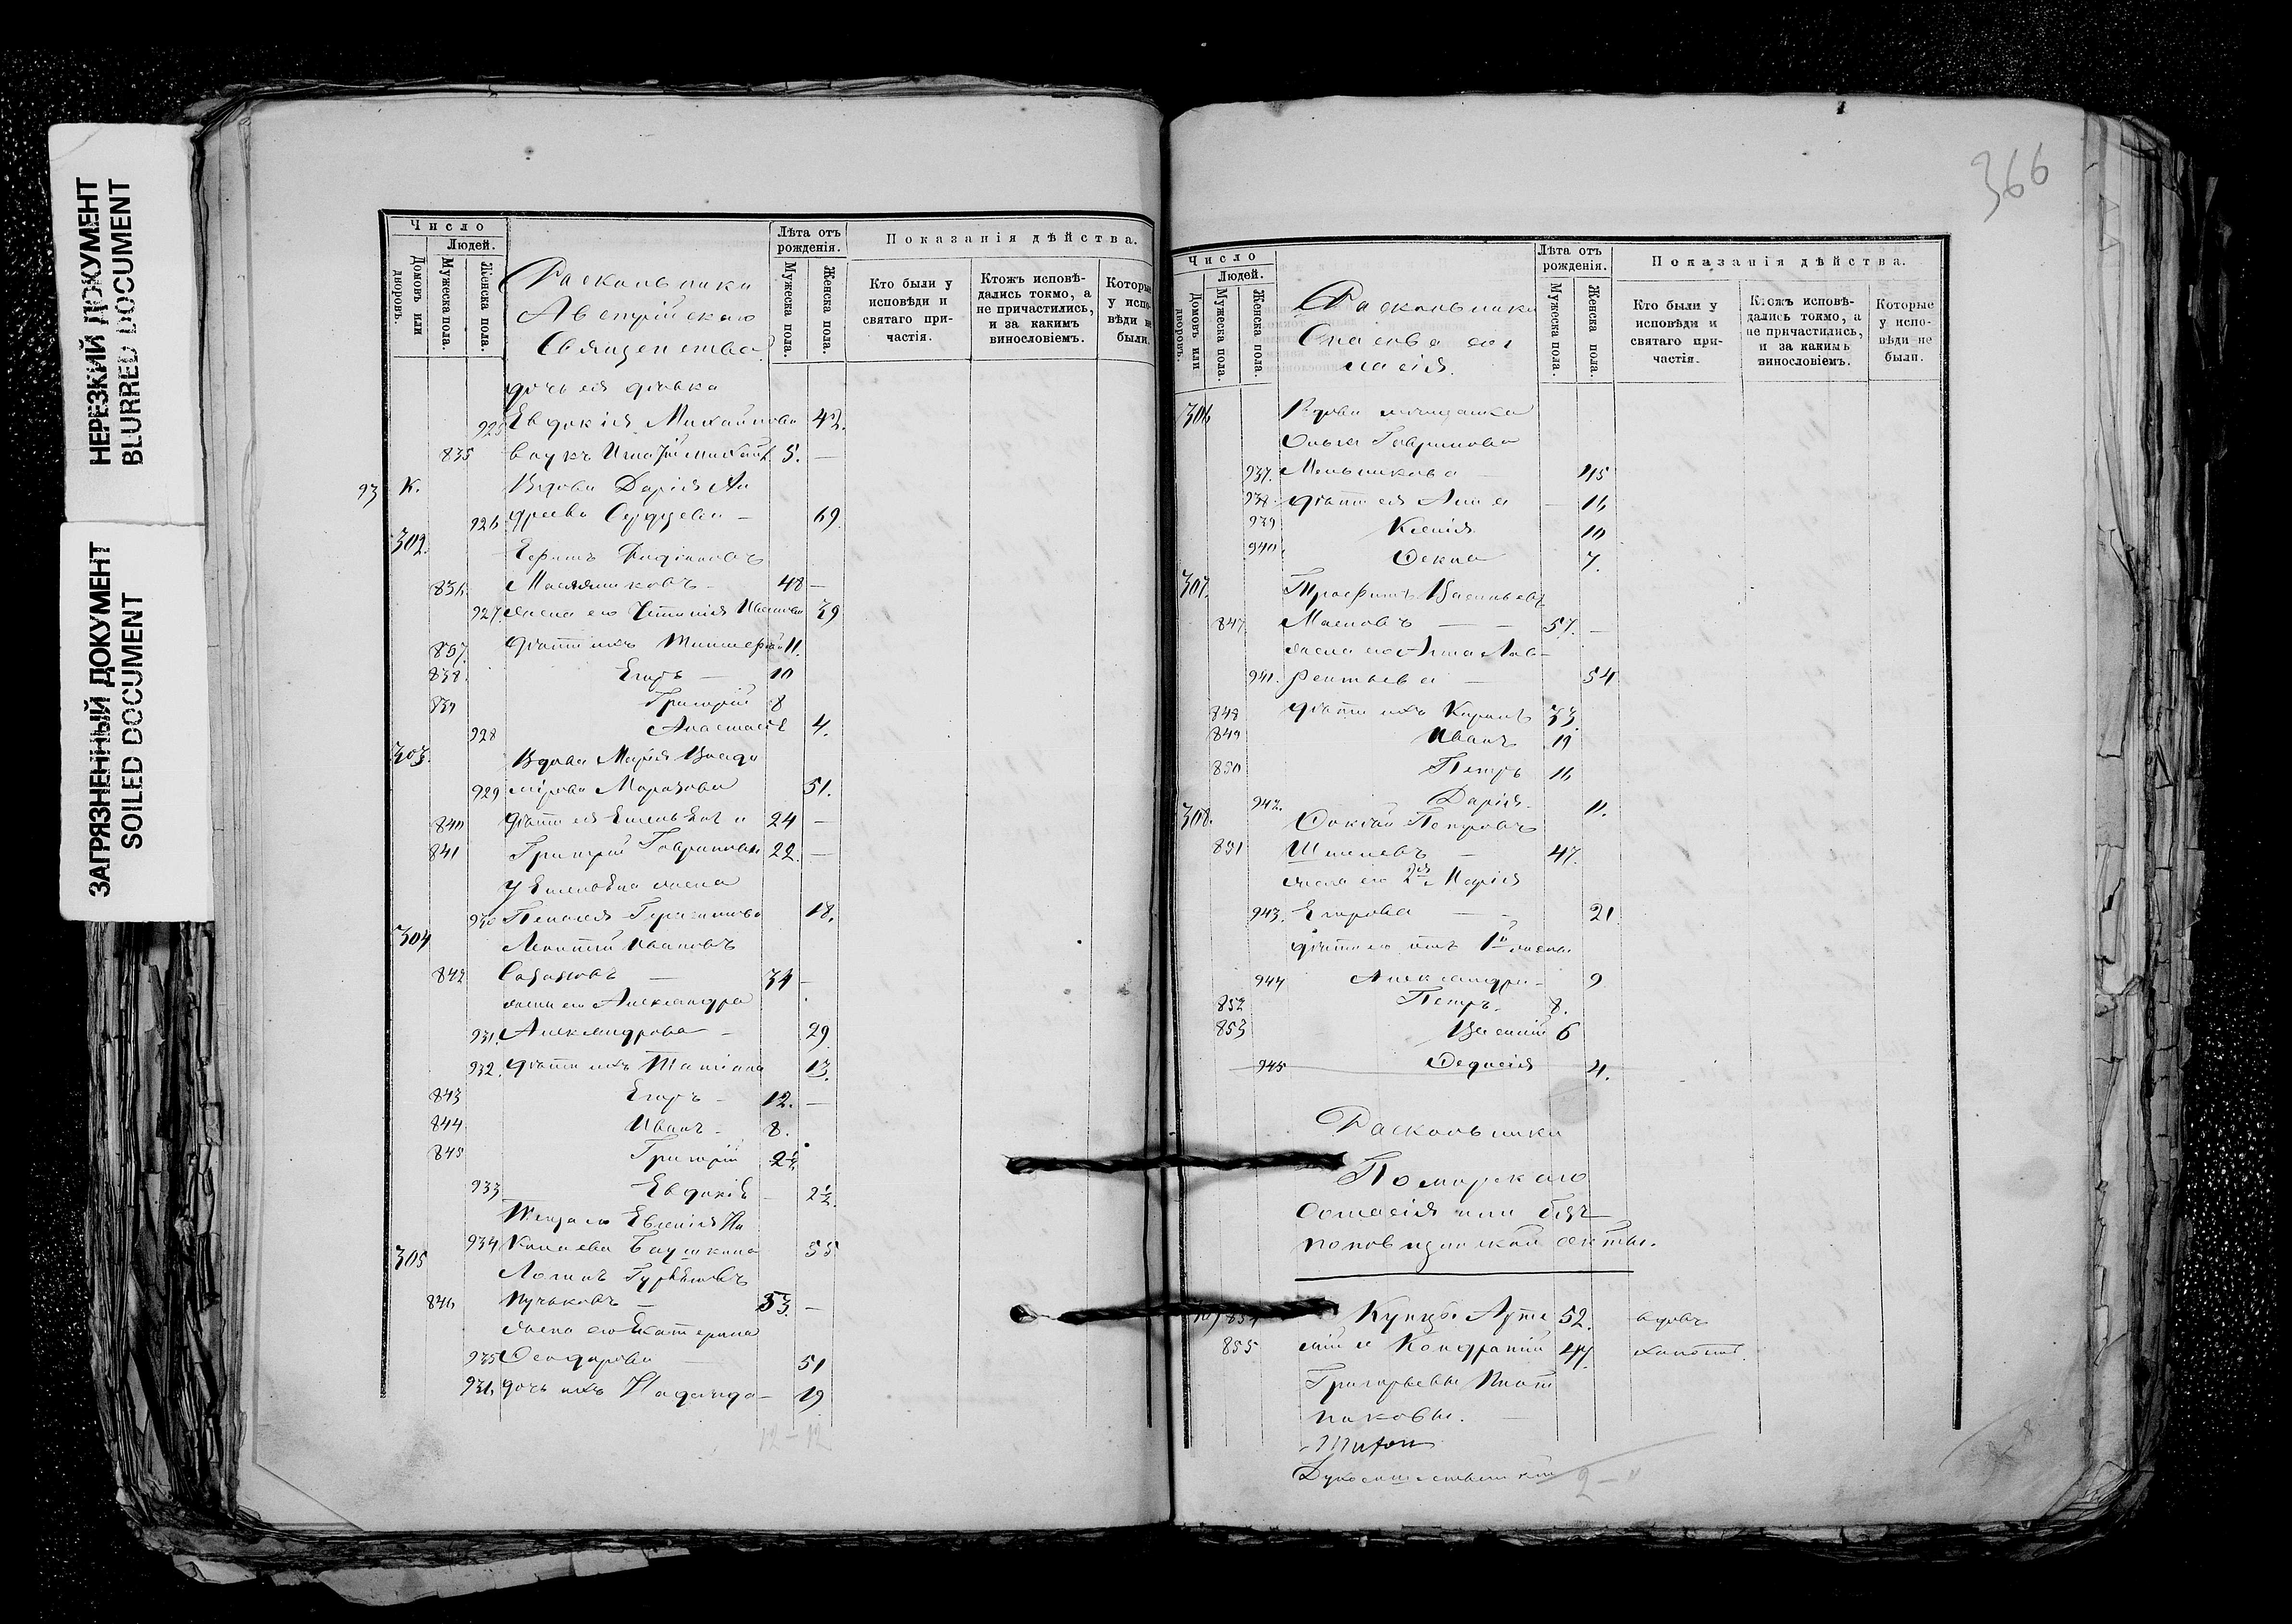 НЕРЕЗКИЙ ДОКУМЕНТ
BLURRED DOCUMENT
ЗАГРЯЗНЕННЫЙ ДОКУМЕНТ
SOILED DOCUMENT
Число
Людей.
Домовъ или дворовъ.
Мужеска пола.
Женска пола.
Раскольники
Австрійскаго
Священства.
Лѣта отъ рожденія.
Мужеска пола.
Женска пола.
Показанія дѣйства.
Кто были у исповѣди и святаго причастія.
Ктожъ исповѣдались токмо, а не причастились, и за какимъ винословіемъ.
Которые у исповѣди не были.
дочь ея дѣвка
925 Евдокія Михайлова 42.
835 внукъ 5. —
93 К. Вдова Дарія Ан
926 дреева — 69
302. Ефимъ
836 Масляниковъ — 48 —
927. жена его Ивановa 39
837. дѣти ихъ Тимофей 11.
838. Егоръ — 10
839 Григорій 8
928 Анастасія 4.
303. Вдова Марія Влади
929 мірова Морозова 51.
840 дѣти ея и 24 —
841 Григорій Гавриловы 22. —
у жена
930 Пелагея Герасимова 18.
304 Леонтій Ивановъ
842 Сазановъ — 34 —
жена его Александра
931. Александрова — 29
932. дѣти ихъ Татіана 13.
843 Егоръ — 12. —
844 Иванъ — 8.
845 Григорій 2½
933 Евдокія — 2½.
Теща его Евгенія Ни
934 колаева 55
305 Логинъ
846 Пучковъ — 53. —
жена его Екатерина
935 Феодорова — 51
936 дочь ихъ Надежда — 19
12 – 12
366
Число
Людей.
Домовъ или дворовъ.
Мужеска пола.
Женска пола.
Раскольники
Спасова сог
ласія.
Лѣта отъ рожденія.
Мужеска пола.
Женска пола.
Показанія дѣйства.
Кто были у исповѣди и святаго причастія.
Ктожъ исповѣдались токмо, а не причастились, и за какимъ винословіемъ.
Которые у исповѣди не были.
306 Вдова мѣщанка
Ольга Гаврилова
937. Мельникова — 45
938. дѣти ея Анна — 16
939 Ксенія 10
940 Фекла 7.
307. Трофимъ Васильевъ
847 Масловъ — — 57. —
жена его Анна Лав-
941. рентьева — 54
848 дѣти ихъ Карпъ 33.
849 Иванъ 19
850 Петръ 16
942. Дарія. 11.
308. Петровъ
851 — 47.
жена его 2ая Марія
943. Егорова — — 21
дѣти его отъ 1й жены
944 Александра — 9
852 Петръ. 8.
853 Василій 6
945 4.
Раскольники
Поморскаго
согласія или без-
поповщинской секты.
854 Купцы Арте 52. вдовъ
855 мій и Кондратій 47. холост.
Григорьевы Плот
никовы.
2 – "